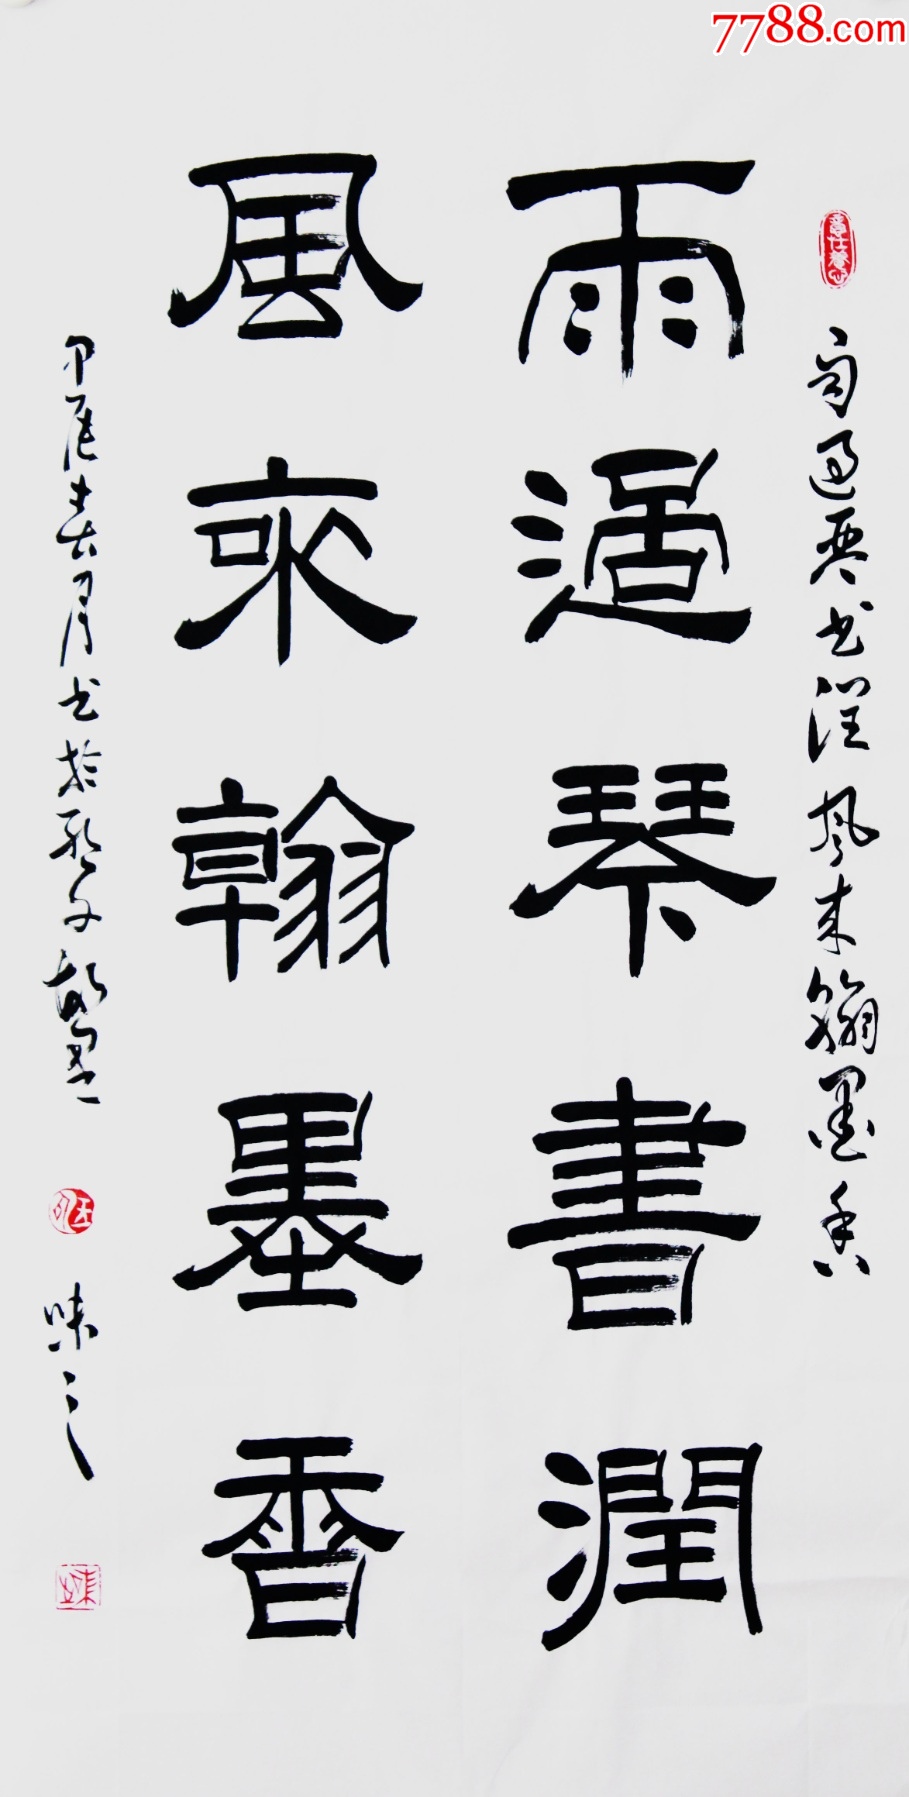 7788.com
雨過琴書潤
風來翰墨香
雨過琴书潤風来翰墨香
甲辰春月书於
味之